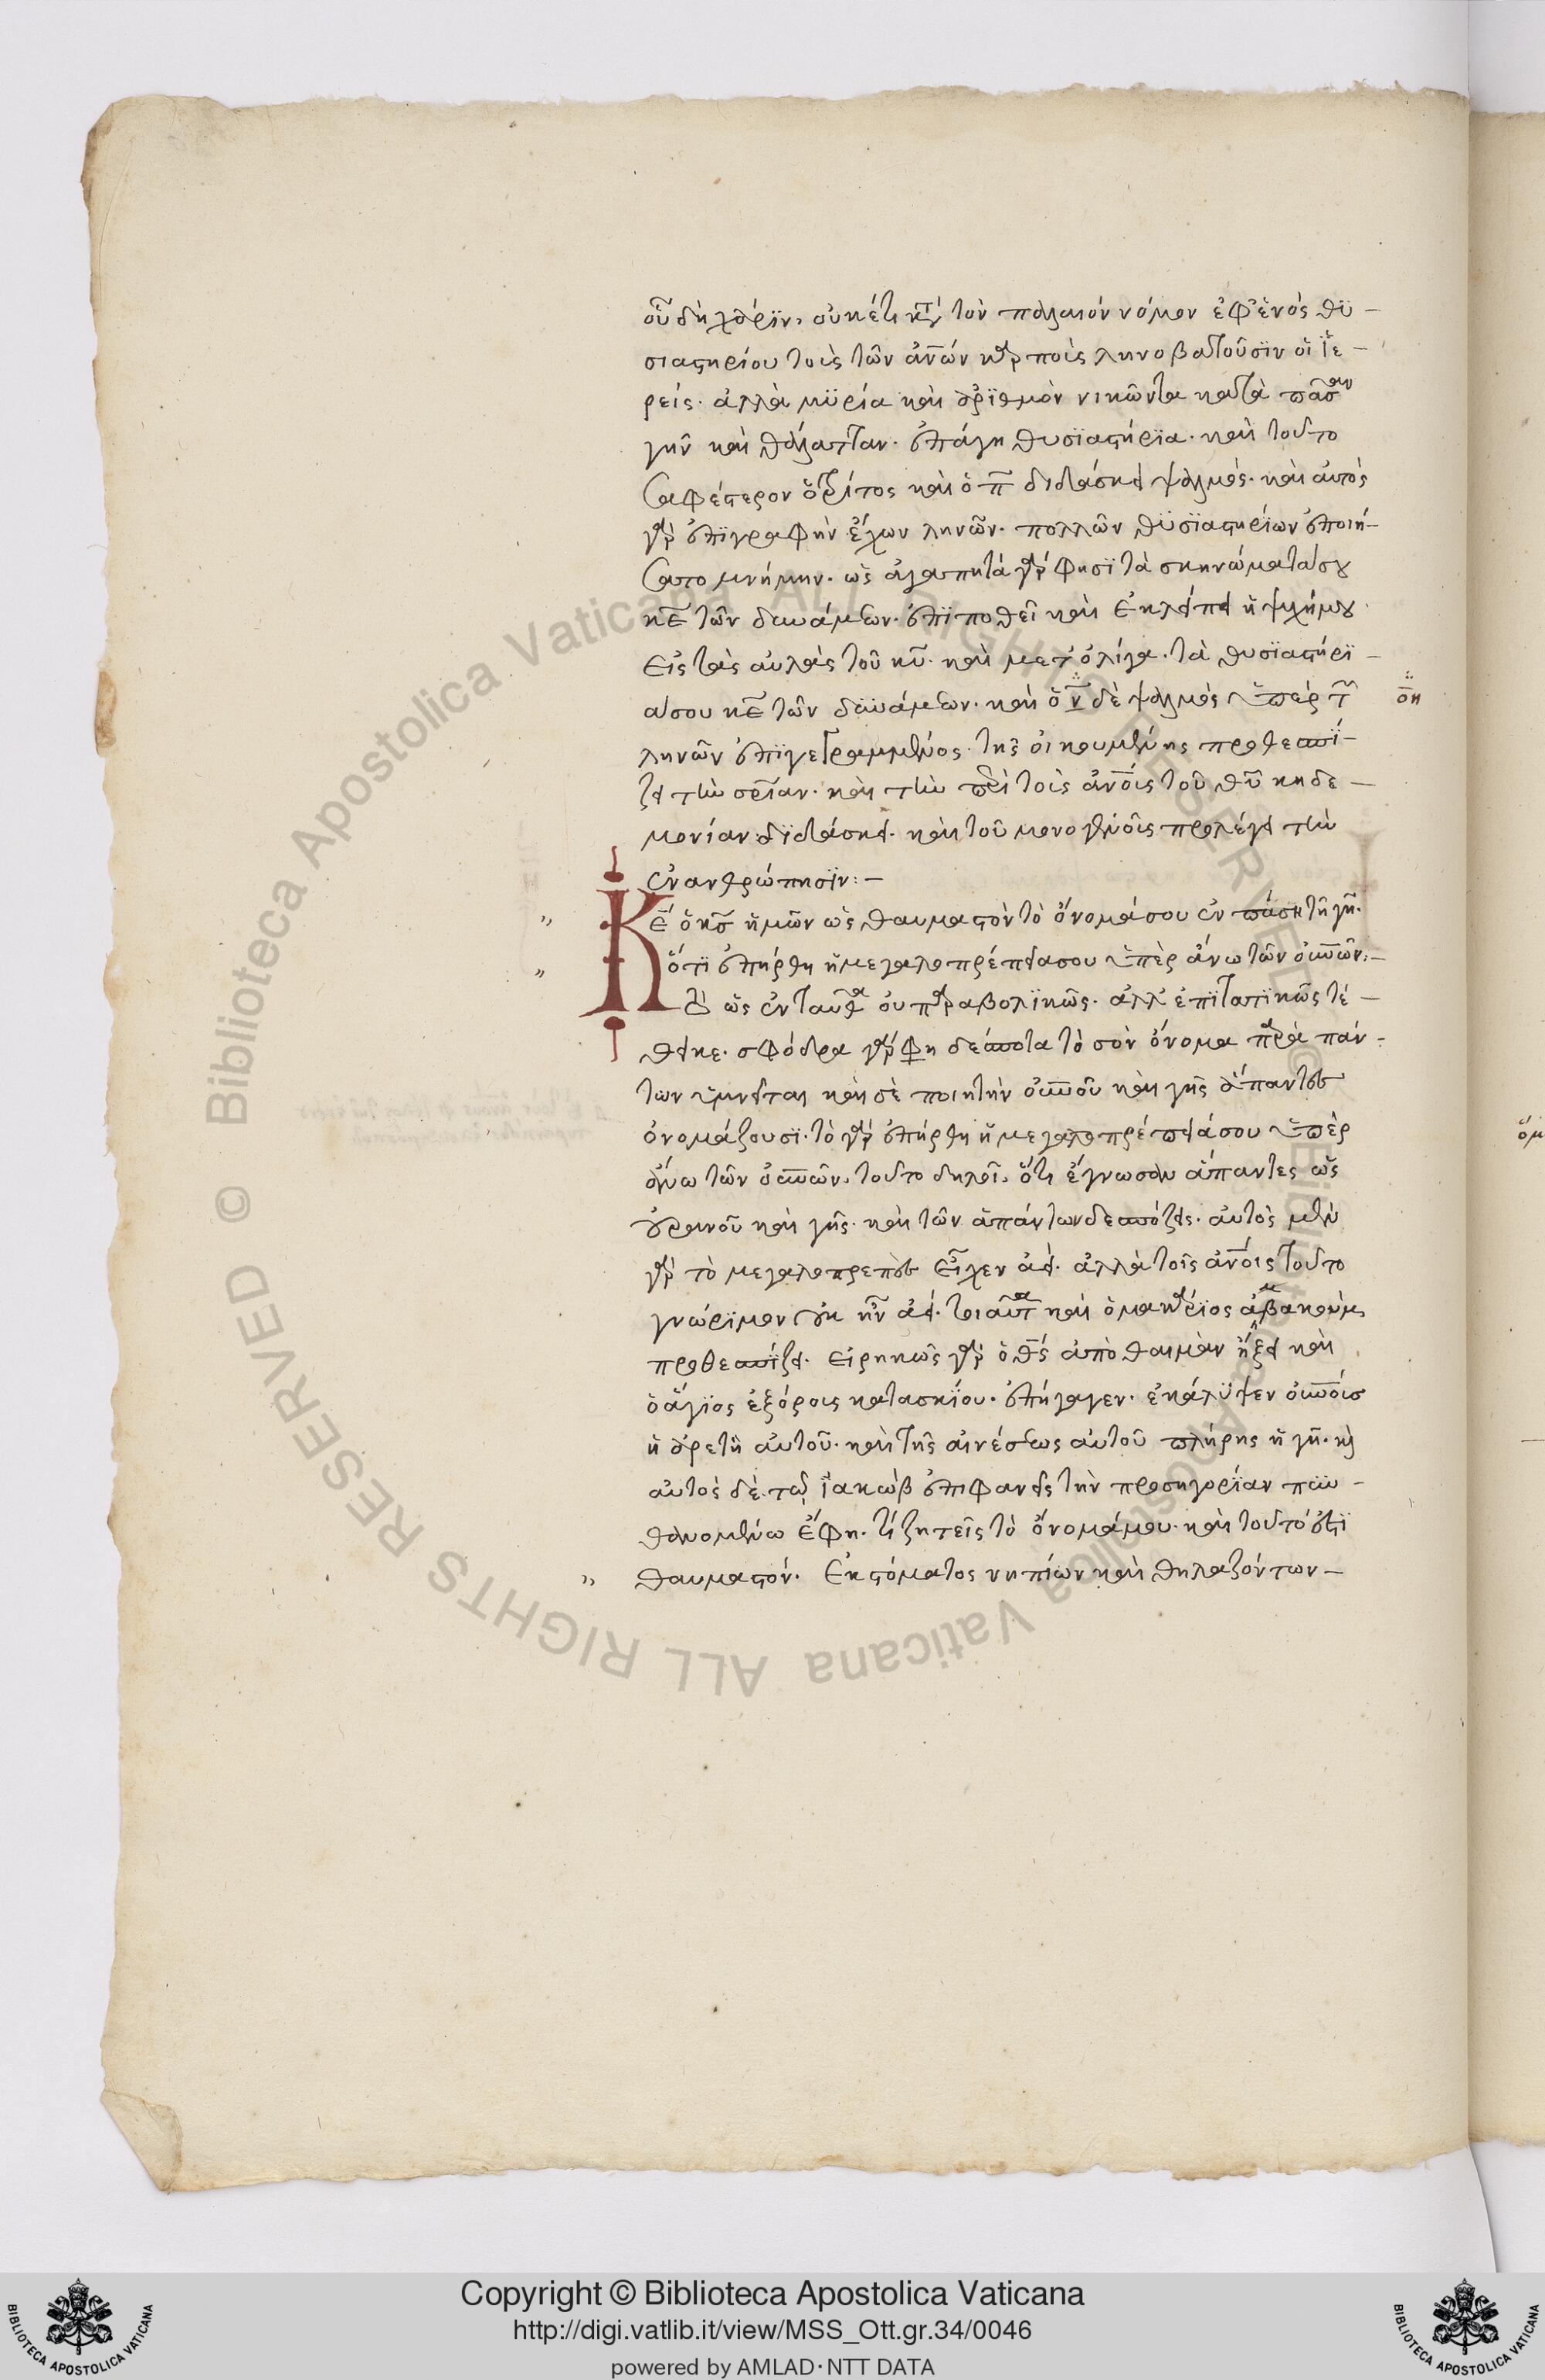 οὗ δὴ χάριν, οὐκέτι κατὰ τὸν παλαιὸν νόμον ἐφ' ἑνὸς θϋ-
σιαστηρίου τοῖς τῶν ἀνων καρποῖς ληνοβατοῦσϊν οἱ ἱε-
ρεῖς. ἀλλὰ μϋρία καὶ ἀρϊθμὸν νικῶντα κατὰ πᾶσαν
γῆν καὶ θάλατταν. ἐπάγη θυσϊαστήρϊα. καὶ τοῦτο
σαφέστερον ὁ τρίτος καὶ ὁ π διδάσκει ψαλμός. καὶ αὐτὸς
γὰρ ἐπϊγραφὴν ἔχων ληνῶν. πολλῶν θϋσϊαστηρίων ἐποιή-
σατο μνήμην. ὡς ἀγαπητὰ γάρ φησϊ τὰ σκηνώματά σου
κε τῶν δυνάμεων. ἐπϊποθεῖ καὶ ἐκλείπει ἡ ψυχή μου
εἰς τὰς αὐλὰς τοῦ κυ. καὶ μετ' ὀλίγα. τὰ θυσϊαστήρϊ-
ά σου κε τῶν δυνάμεων. καὶ ὁ ν δὲ ψαλμὸς ὑπὲρ τῶν
ὄη
ληνῶν ἐπϊγεγραμμένος. τῆς οἰκουμένης προθεσπί-
ζει τὴν σριαν. καὶ τὴν περὶ τοὺς ἀνους τοῦ θυ κηδε-
μονίαν δϊδάσκει. καὶ τοῦ μονογενοῦς προλέγει τὴν
ἐνανθρώπησϊν:-
Κε ὁ κς ἡμῶν ὡς θαυμαστὸν τὸ ὄνομά σου ἐν πάσῃ τῇ γῇ.
ὅτϊ ἐπήρθη ἡ μεγαλοπρέπειά σου ὑπὲρ ἄνω τῶν οὐνων:-
Τὸ ὡς ἐνταῦθα οὐ παραβολϊκῶς. ἀλλ' ἐπϊτατϊκῶς τέ-
θεικε. σφόδρα γάρ φη δέσποτα τὸ σὸν ὄνομα παρὰ πάν-
των ὑμνεῖται καὶ σὲ ποιητὴν οὐνου καὶ γῆς ἅπαντες
ὀνομάζουσϊ. τὸ γὰρ ἐπήρθη ἡ μεγαλοπρέπειά σου ὑπὲρ
ἄνω τῶν οὐνων, τοῦτο δηλοῖ, ὅτι ἔγνωσαν ἅπαντες ὡς
οὐρανοῦ καὶ γῆς. καὶ τῶν ἁπάντων δεσπόζεις. αὐτὸς μὲν
γὰρ τὸ μεγαλοπρεπὲς εἶχεν ἀεί. ἀλλὰ τοῖς ἀνοις τοῦτο
γνώρϊμον οὐκ ἦν ἀεί. τοιαῦτα καὶ ὁ μακάρϊος ἀμβακοὺμ
προθεσπϊζει. εἰρηκὼς γὰρ ὁ θς ἀπὸ θαιμὰν ἥξει καὶ
ὁ ἅγϊος ἐξ ὄρους κατασκΐου. ἐπήγαγεν. ἐκάλϋψεν οὐνους
ἡ ἀρετὴ αὐτοῦ. καὶ τῆς αἰνέσεως αὐτοῦ πλήρης ἡ γῆ. κ
αὐτὸς δὲ τῷ ϊακὼβ ἐπιφανεὶς τὴν προσηγορίαν πυν-
θανομένω ἔφη. τί ζητεῖς τὸ ὄνομά μου. καὶ τοῦτό ἐστϊ
θαυμαστόν. Ἐκ στόματος νηπίων καὶ θηλαζόντων-
Copyright © Biblioteca Apostolica Vaticana
http://digi.vatlib.it/view/MSS_Ott.gr.34/0046
powered by AMLAD·NTT DATA